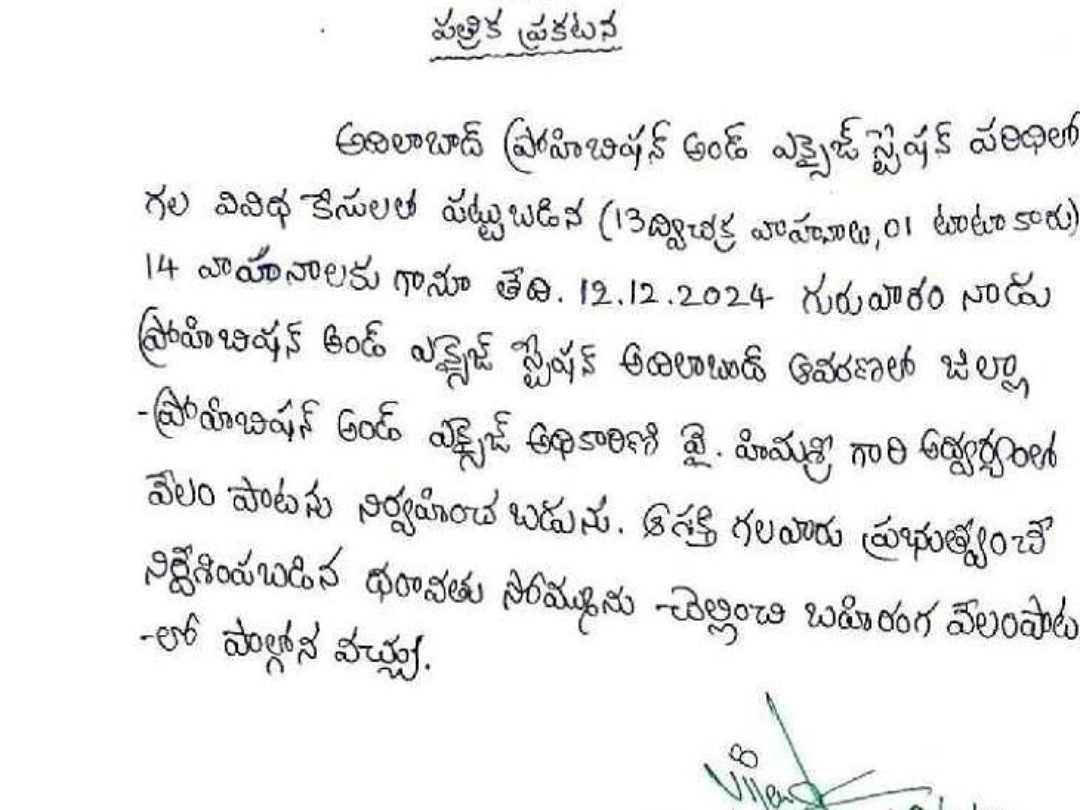 పత్రిక ప్రకటన
అదిలాబాద్ ప్రోహిబిషన్ అండ్ ఎక్సైజ్ స్టేషన్ పరిధిలో
గల వివిధ కేసులలో పట్టుబడిన (13ద్విచక్ర వాహనాలు,01 టాటా కారు)
14 వాహనాలకు గానూ తేది. 12.12.2024 గురువారం నాడు
ప్రోహిబిషన్ అండ్ ఎక్సైజ్ స్టేషన్ అదిలాబాద్ ఆవరణలో జిల్లా
-ప్రోహిబిషన్ అండ్ ఎక్సైజ్ అధికారిణి వై. హిమశ్రీ గారి అధ్వర్యంలో
వేలం పాటను నిర్వహించ బడును. ఆసక్తి గలవారు ప్రభుత్వంచే
నిర్దేశింపబడిన ధరావతు సోమ్మును చెల్లించి బహిరంగ వేలంపాట
-లో పాల్గొన వచ్చు.